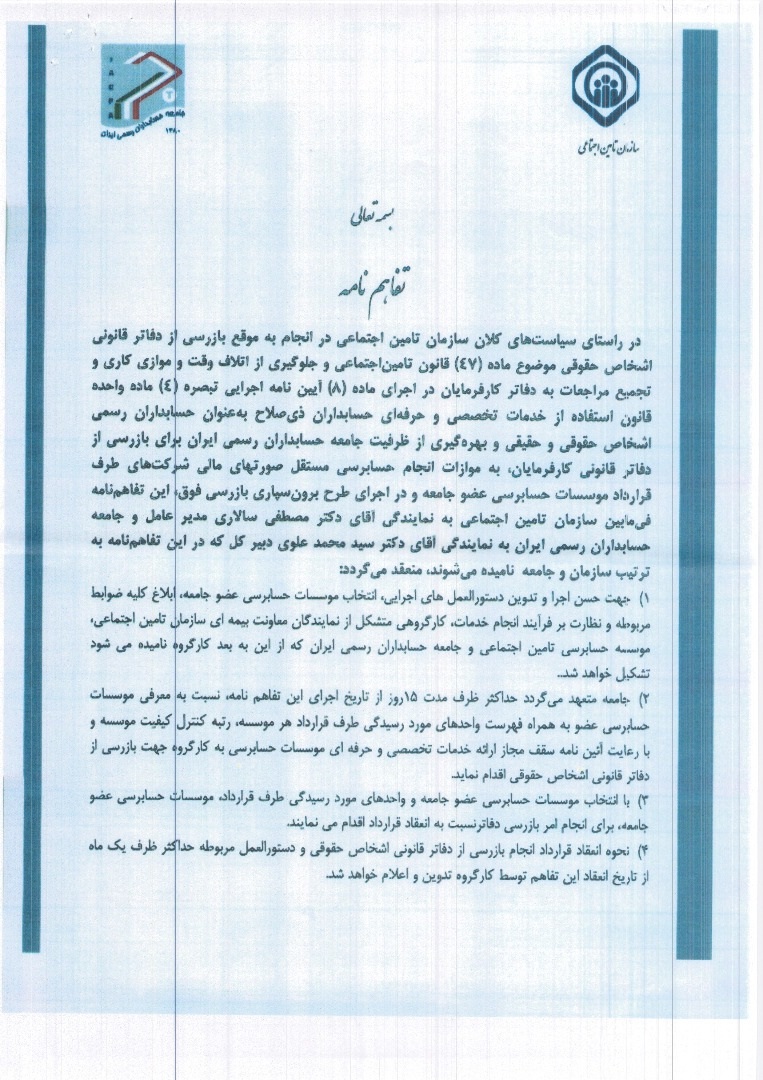 IACPA
جامعه حسابداران رسمی ایران
۱۳۸۰
سازمان تامین اجتماعی
بسمه تعالی
تفاهم نامه
در راستای سیاست‌های کلان سازمان تامین اجتماعی در انجام به موقع بازرسی از دفاتر قانونی
اشخاص حقوقی موضوع ماده (٤٧) قانون تامین‌اجتماعی و جلوگیری از اتلاف وقت و موازی کاری و
تجمیع مراجعات به دفاتر کارفرمایان در اجرای ماده (٨) آیین نامه اجرایی تبصره (٤) ماده واحده
قانون استفاده از خدمات تخصصی و حرفه‌ای حسابداران ذی‌صلاح به‌عنوان حسابداران رسمی
اشخاص حقوقی و حقیقی و بهره‌گیری از ظرفیت جامعه حسابداران رسمی ایران برای بازرسی از
دفاتر قانونی کارفرمایان، به موازات انجام حسابرسی مستقل صورتهای مالی شرکت‌های طرف
قرارداد موسسات حسابرسی عضو جامعه و در اجرای طرح برون‌سپاری بازرسی فوق، این تفاهم‌نامه
فی‌مابین سازمان تامین اجتماعی به نمایندگی آقای دکتر مصطفی سالاری مدیر عامل و جامعه
حسابداران رسمی ایران به نمایندگی آقای دکتر سید محمد علوی دبیر کل که در این تفاهم‌نامه به
ترتیب سازمان و جامعه نامیده می‌شوند، منعقد می‌گردد:
۱) جهت حسن اجرا و تدوین دستورالعمل های اجرایی، انتخاب موسسات حسابرسی عضو جامعه، ابلاغ کلیه ضوابط
مربوطه و نظارت بر فرآیند انجام خدمات، کارگروهی متشکل از نمایندگان معاونت بیمه ای سازمان تامین اجتماعی،
موسسه حسابرسی تامین اجتماعی و جامعه حسابداران رسمی ایران که از این به بعد کارگروه نامیده می شود
تشکیل خواهد شد..
۲) جامعه متعهد می‌گردد حداکثر ظرف مدت ۱۵روز از تاریخ اجرای این تفاهم نامه، نسبت به معرفی موسسات
حسابرسی عضو به همراه فهرست واحدهای مورد رسیدگی طرف قرارداد هر موسسه، رتبه کنترل کیفیت موسسه و
با رعایت آئین نامه سقف مجاز ارائه خدمات تخصصی و حرفه ای موسسات حسابرسی به کارگروه جهت بازرسی از
دفاتر قانونی اشخاص حقوقی اقدام نماید.
۳) با انتخاب موسسات حسابرسی عضو جامعه و واحدهای مورد رسیدگی طرف قرارداد، موسسات حسابرسی عضو
جامعه، برای انجام امر بازرسی دفاترنسبت به انعقاد قرارداد اقدام می نمایند.
۴) نحوه انعقاد قرارداد انجام بازرسی از دفاتر قانونی اشخاص حقوقی و دستورالعمل مربوطه حداکثر ظرف یک ماه
از تاریخ انعقاد این تفاهم توسط کارگروه تدوین و اعلام خواهد شد.